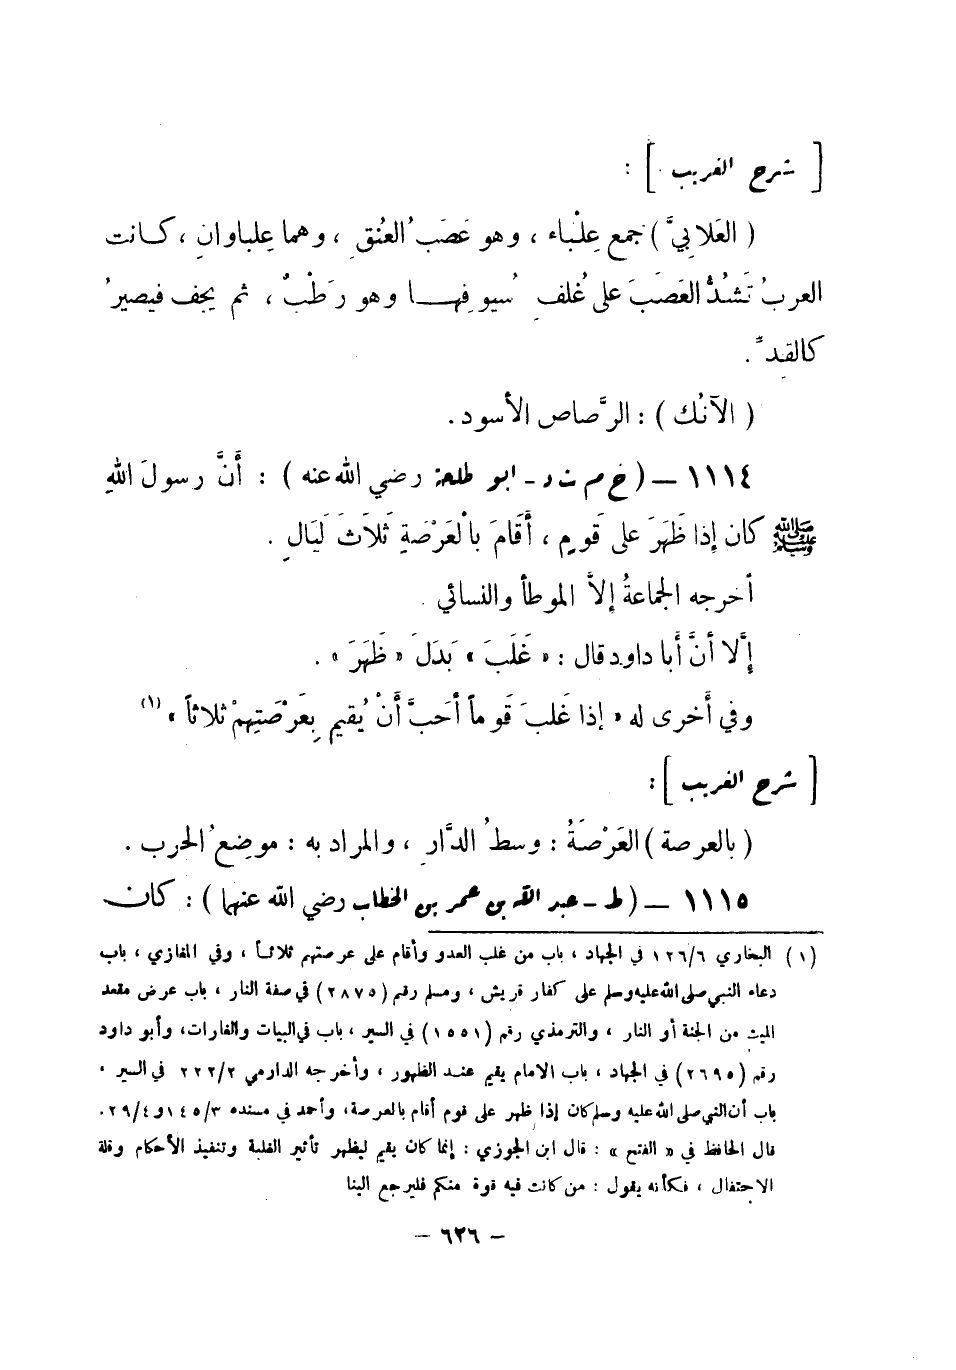 [ شرح الغريب ] :
( العَلابيَّ ) جمع عِلْباء ، وهو عَصَبُ العُنقِ ، وهما عِلباوانِ ، كانت
العربُ تَشُدُّ العَصَبَ على غُلفِ سُيوفِها وهو رَطْبٌ ، ثم يجف فيصيرُ
كالقِدِّ .
( الآنُك ) : الرَّصاص الأسود .
١١١٤ — ( خ م ت د - ابو طلحة رضي الله عنه ) : أَنَّ رسولَ اللهِ
ﷺ كان إِذا ظَهَرَ على قَومٍ ، أَقَامَ بالْعَرْصَةِ ثَلاَثَ لَيَالٍ .
أخرجه الجماعةُ إِلاَّ الموطأ والنسائي .
إِلَّا أنَّ أَبا داود قال : « غَلَبَ » بَدَلَ « ظَهَرَ » .
وفي أَخرى له « إذا غَلبَ قَوماً أحَبَّ أَنْ يُقيم بِعَرْصَتِهِمْ ثلاثاً » (١)
[ شرح الغريب ] :
( بالعرصة ) العَرْصَةُ : وسطُ الدَّارِ ، والمراد به : موضِعُ الحرب .
١١١٥ — ( ط - عبد الله بن عمر بن الخطاب رضي الله عنهما ) : كان
(١) البخاري ١٢٦/٦ في الجهاد ، باب من غلب العدو وأقام على عرصتهم ثلاثاً ، وفي المغازي ، باب
دعاء النبي صلى الله عليه وسلم على كفار قريش ، ومسلم رقم (٢٨٧٥) في صفة النار ، باب عرض مقعد
الميت من الجنة أو النار ، والترمذي رقم (١٥٥١) في السير ، باب في البيات والغارات، وأبو داود
رقم (٢٦٩٥) في الجهاد ، باب الامام يقيم عند الظهور ، وأخرجه الدارمي ٢٢٢/٢ في السير ،
باب أن النبي صلى الله عليه وسلم كان إذا ظهر على قوم أقام بالعرصة، وأحمد في مسنده ١٤٥/٣ و٢٩/٤.
قال الحافظ في « الفتح » : قال ابن الجوزي : إنما كان يقيم ليظهر تأثير الغلبة وتنفيذ الأحكام وقلة
الاحتفال ، فكأنه يقول : من كانت فيه قوة منكم فليرجع الينا
– ٦٢٦ –